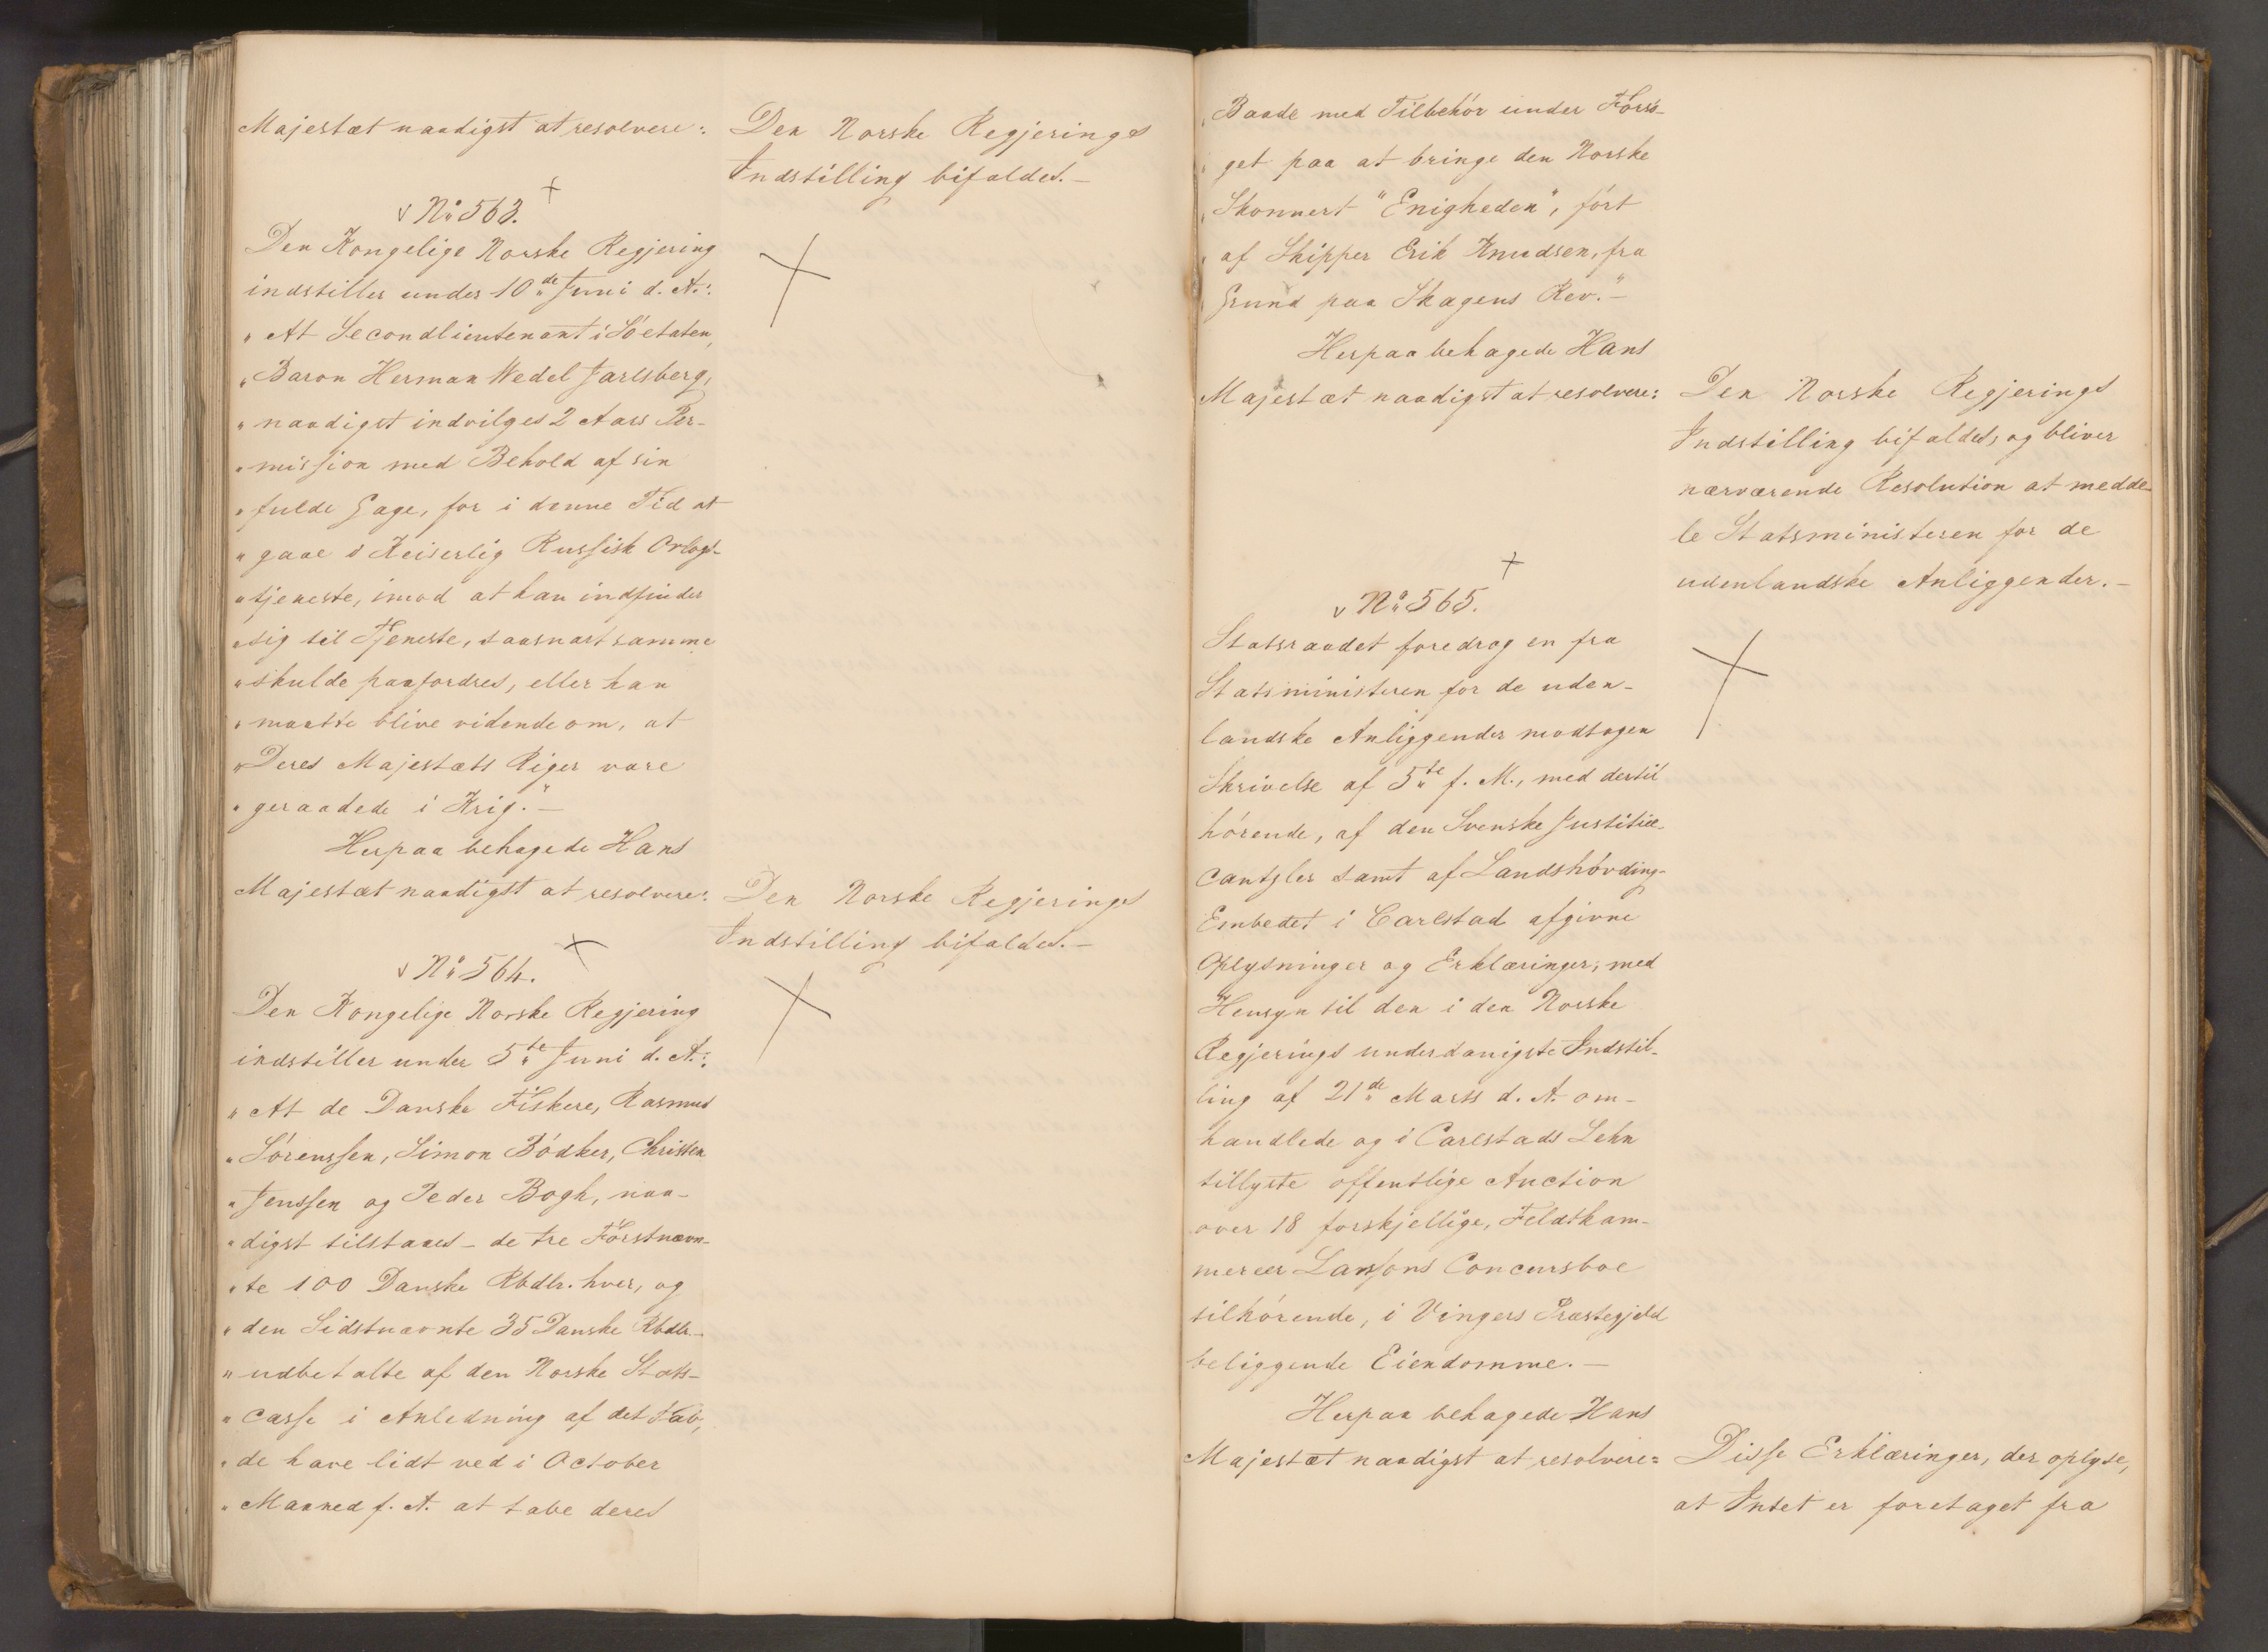 Majestæt naadigst at resolvere:
Den Norske Regjerings
Indstilling bifaldes.-
No 563.
Den Kongelige Norske Regjering
indstiller under 10de Juni d. A.:
"At Secondlieutenant i Söetaten,
"Baron Herman Wedel Jarlsberg,
"naadigst indvilges 2 Aars Per-
"mission med Behold af sin
"fulde Gage, for i denne Tid at
"gaae i Keiserlig Russisk Orlogs-
"tjeneste, imod at han indfinder
"sig til Tjeneste, saasnart samme
"skulde paafordres, eller han
"maatte blive vidende om, at
"Deres Majestæts Riger vare
"geraadede i Krig."-
Herpaa behagede Hans
Majestæt naadigst at resolvere:
Den Norske Regjerings
Indstilling bifaldes.-
No 564.
Den Kongelige Norske Regjering
indstiller under 5te Juni d. A.:
"At de Danske Fiskere, Rasmus
"Sörenssen, Simon Bödker, Christen
"Jenssen og Peder Bogh, naa-
"digst tilstaaes - de tre Förstnævn-
"te 100 Danske Rbdlr. hver, og
"den Sidstnævnte 35 Danske Rbdlr.-
"udbetalte af den Norske Stats-
"casse i Anledning af det Tab,
"de have lidt ved i October
"Maaned f. A. at tabe deres
"Baade med Tilbehör under Forsö-
"get paa at bringe den Norske
"Skonnert "Enigheden", fört
"af Skipper Erik Knudsen, fra
"Grund paa Skagens Rev."-
Herpaa behagede Hans
Majestæt naadigst at resolvere:
Den Norske Regjerings
Indstilling bifaldes, og bliver
nærværende Resolution at medde-
le Statsministeren for de
udenlandske Anliggender.-
No 565.
Statsraadet foredrog en fra
Statsministeren for de uden-
landske Anliggender modtagen
Skrivelse af 5te f. M., med dertil
hörende, af den Svenske Justitiæ-
cantsler samt af Landshövding-
Embedet i Carlstad afgivne
Oplysninger og Erklæringer, med
Hensyn til den i den Norske
Regjerings underdanigste Indstil-
ling af 21de Marts d. A. om-
handlede og i Carlstads Lehn
tillyste offentlige Auction
over 18 forskjellige, Feldtkam-
mereer Larssons Concursboe
tilhörende, i Vingers Præstegjeld
beliggende Eiendomme.-
Herpaa behagede Hans
Majestæt naadigst at resolvere:
Disse Erklæringer, der oplyse,
at Intet er foretaget fra